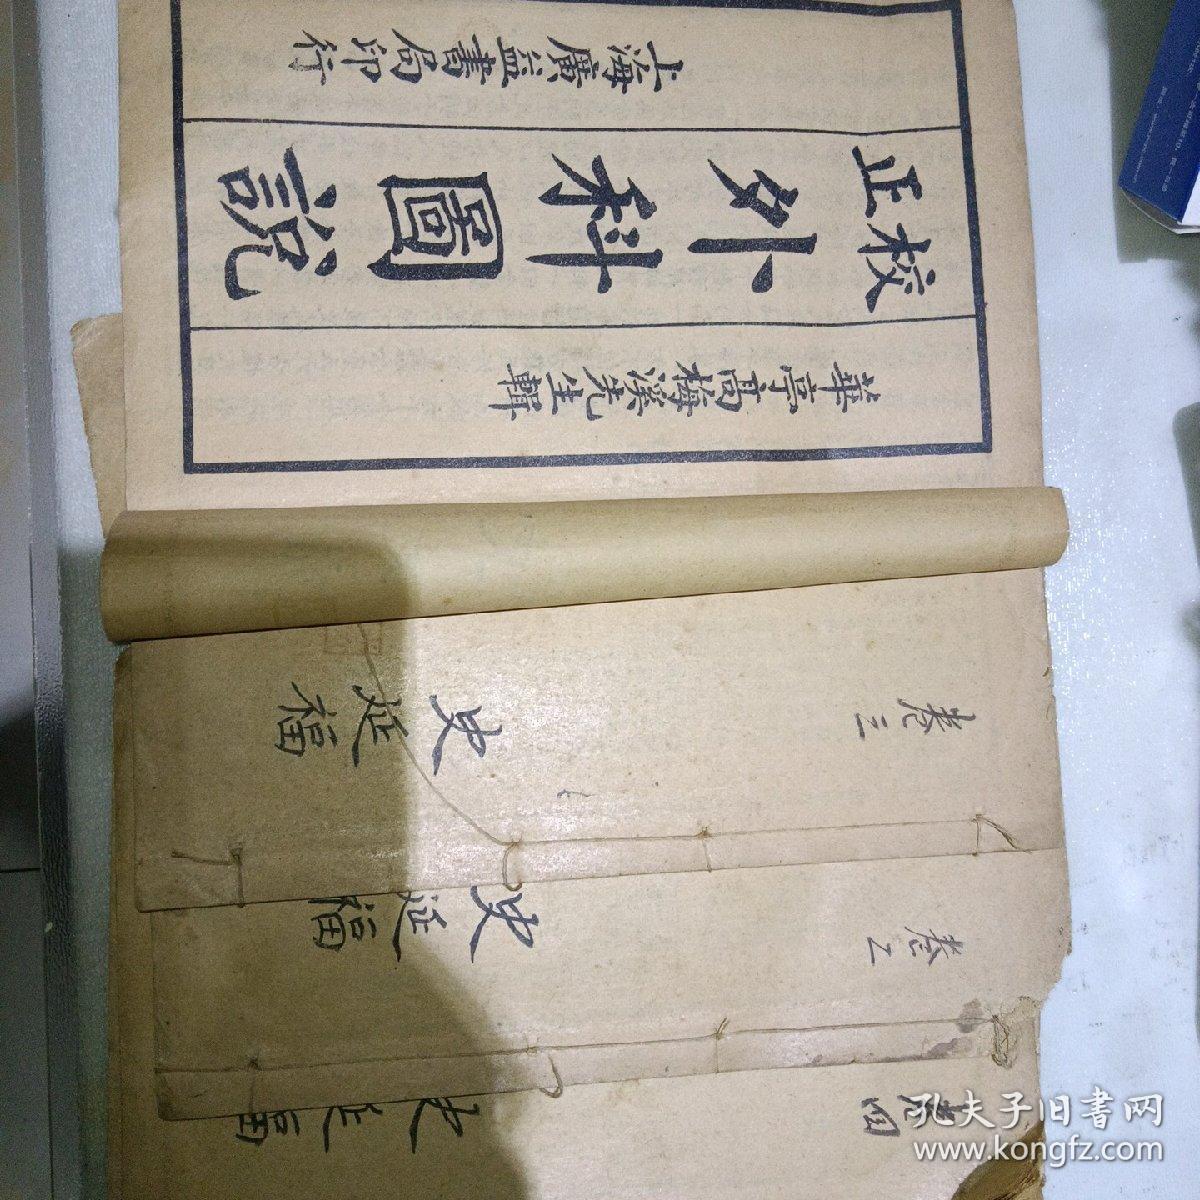 華亭高梅溪先生輯
校正
外科圖說
上海廣益書局印行
卷三
史延福
卷二
史延福
卷四
史延福
孔夫子旧書网
www.kongfz.com